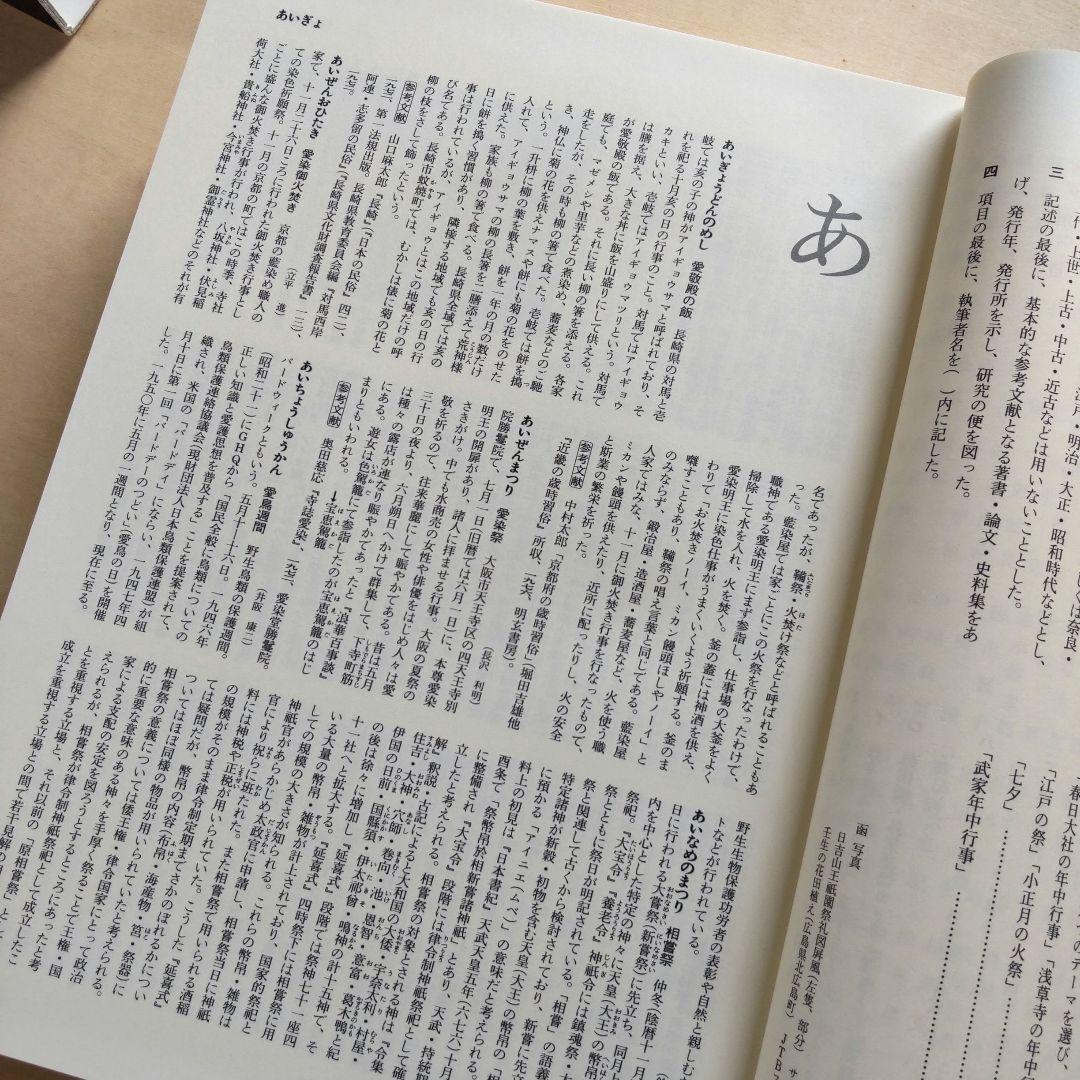 あいぎょ
あ
あいぎょうどんのめし　愛敬殿の飯　長崎県の対馬と壱
岐では亥の子の神がアイギョウサマと呼ばれており、そ
れを祀る十月亥の日の行事のこと。対馬ではアイギョウ
カキといい、壱岐ではアイギョウマツリという。対馬で
は膳を据え、大きな丼に飯を山盛りにして供える。これ
が愛敬殿の飯である。それに長い柳の箸を添える。各家
庭でも、マゼメシや里芋などの煮染め、蕎麦などのご馳
走をしたが、その時も柳の箸で食べた。壱岐では餅を搗
き、神仏に菊の花を供えナマスや餅にも菊の花をのせた
という。一升枡に柳の葉を敷き、餅を一年の月の数だけ
入れて、アイギョウサマの柳の長箸を一膳添えて荒神様
に供えた。家族も柳の箸で食べる。長崎県全域では亥の
日に餅を搗く習慣があり、隣接する地域でも亥の日の行
事は行われているが、アイギョウとはこの地域だけの呼
び名である。長崎市蚊焼町では、むかしは俵に菊の花と
柳の枝をさして飾ったという。
参考文献　山口麻太郎『長崎』（『日本の民俗』四二）、
一九七二、第一法規出版。『長崎県文化財調査報告書』一三）、
阿連・志多留の民俗』（長崎県教育委員会編『対馬西岸
一九七三。
（立平　進）
あいぜんおひたき　愛染御火焚き　京都の藍染め職人の
家で、十一月二十六日ころに行われた御火焚き行事とし
ての染色祈願祭。十一月の京都の町ではこの時季、寺社
ごとに盛んな御火焚き行事が行われ、八坂神社・伏見稲
荷大社・貴船神社・今宮神社・御霊神社などのそれが有
名であったが、鞴祭・火焚け祭などと呼ばれることもあ
った。藍染屋では家ごとにこの火祭を行なったわけで、
職神である愛染明王にまず参詣し、仕事場の大釜をよく
掃除して水を入れ、火を焚く。釜の蓋には神酒を供え、
愛染明王に染色仕事がうまくいくよう祈願する。釜のま
わりで「お火焚きノーイ、ミカン饅頭ほしやノーイ」と
囃すこともあり、鞴祭の唱え言葉と同じである。藍染屋
のみならず、鍛冶屋・造酒屋・蕎麦屋など、火を使う職
人家ではみな、十一月に御火焚き行事を行なったもので、
ミカンや饅頭を供えたり、近所に配ったりし、火の安全
と斯業の繁栄を祈った。
参考文献　中村太郎「京都府の歳時習俗」（堀田吉雄他
『近畿の歳時習俗』所収、一九七六、明玄書房）。
（長沢　利明）
あいぜんまつり　愛染祭　大阪市天王寺区の四天王寺別
院勝鬘院で、七月一日（旧暦では六月一日）に、本尊愛染
明王の開扉があり、諸人に拝ませる行事。大阪の夏祭の
さきがけ。中でも水商売の女性や俳優をはじめ人々は愛
敬を祈るので、往来華麗にして賑やかである。昔は五月
三十日の夜より、六月朔日へかけて群集して、下寺町筋
は種々の露店が連なり賑やかであったと『浪華百事談』
にある。遊女は色駕籠にて参詣したのが宝恵駕籠のはじ
まりともいわれる。　↓宝恵駕籠
参考文献　奥田慈応『寺誌愛染』、一九七三、愛染堂勝鬘院。
（井阪　康二）
あいちょうしゅうかん　愛鳥週間　野生鳥類の保護週間。
バードウィークともいう。五月十―十六日。一九四六年
（昭和二十一）にGHQから「国民全般に鳥類についての
正しい知識と愛護思想を普及する」ことを提案されて、
鳥類保護連絡協議会（現財団法人日本鳥類保護連盟）が組
織され、米国の「バードデイ」にならい、一九四七年四
月十日に第一回「バードデーのつどい」（愛鳥の日）を開催
した。一九五〇年に五月の一週間となり、現在に至る。
野生生物保護功労者の表彰や自然と親しむ
トなどが行われている。
あいなめのまつり　相嘗祭　仲冬（陰暦十一月
日に行われる大嘗祭（新嘗祭）に先立ち、同月上
内を中心とした特定の神々に天皇（大王）の幣帛
祭祀。『大宝令』『養老令』神祇令には鎮魂祭・大
祭とともに祭日が明記されており、新嘗に先立
祭と関連して古くから検討されている。「相嘗」の語義
特定諸神が新穀・初物を含む天皇（大王）の幣帛の
に預かる「アイニエ（ムベ）」の意味だと考えられる。
料上の初見は『日本書紀』天武天皇五年（六七六）十月
酉条で「祭幣帛於相新嘗諸神祇」とあり、天武・持統朝
に整備され『大宝令』段階には律令制神祇祭祀として確
立したと考えられる。相嘗祭の対象とされる神は『令集
解』釈説・古記によると大和国の大倭・宇奈太利・村屋・
住吉・大神・穴師・巻向・池・恩智・意富・葛木鴨と紀
伊国の日前・国懸須・伊太祁曾・鳴神の計十五神で、そ
の後は徐々に増加し『延喜式』段階では祭神七十一座四
十一社へと拡大する。『延喜式』四時祭下には相嘗祭に用
いる大量の幣帛・雑物が計上されており、国家的祭祀と
しての規模の大きさが知られる。これらの幣帛・雑物は
神祇官があらかじめ太政官に申請し、相嘗祭当日に神祇
官により祝らに班たれた。また相嘗祭で用いられる酒稲
料には神税や正税が用いられていた。こうした『延喜式』
の規模がそのまま律令制定期までさかのぼれるかについ
ては疑問だが、幣帛の内容（布帛・海産物・筥・祭器）に
ついてはほぼ同様の物品が用いられていたと考えられる。
相嘗祭の意義については倭王権・律令国家にとって政治
的に重要な意味のある神々を手厚く祭ることで王権・国
家による支配の安定を図ろうとするところにあったと考
えられるが、相嘗祭が律令制神祇祭祀として成立したこ
とを重視する立場と、それ以前の「原相嘗祭」と
成立を重視する立場との間で若干見解の
代・上世・上古・中古・近古などは用いないこととした。
三　記述の最後に、基本的な参考文献となる著書・論文・史料集をあ
げ、発行年、発行所を示し、研究の便を図った。
四　項目の最後に、執筆者名を（　）内に記した。
「春日大社の年中行事」「浅草寺の年中行
「江戸の祭」「小正月の火祭」
「七夕」
「武家年中行事」
函　写真
日吉山王祇園祭礼図屏風（左隻、部分）
壬生の花田植え（広島県北広島町）　JTB